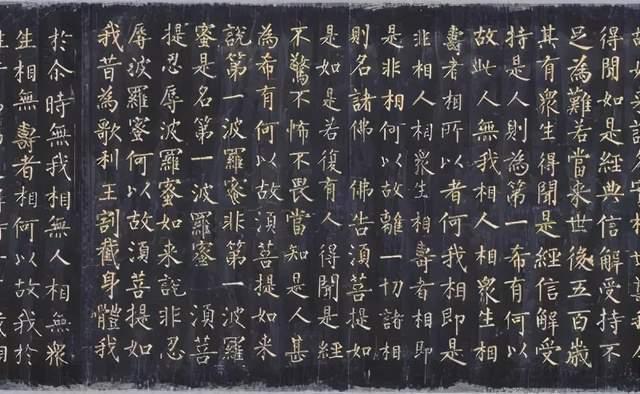 得聞如是經典信解受持不
足為難若當来世後五百歲
其有衆生得聞是經信解受
持是人則為第一希有何以
故此人無我相人相衆生相
壽者相所以者何我相即是
非相人相衆生相壽者相即
是非相何以故離一切諸相
則名諸佛 佛告須菩提如
是如是若復有人得聞是經
不驚不怖不畏當知是人甚
為希有何以故須菩提如来
說第一波羅蜜非第一波羅
蜜是名第一波羅蜜 須菩
提忍辱波羅蜜如来說非忍
辱波羅蜜何以故須菩提如
我昔為歌利王割截身體我
於尒時無我相無人相無衆
生相無壽者相何以故我於